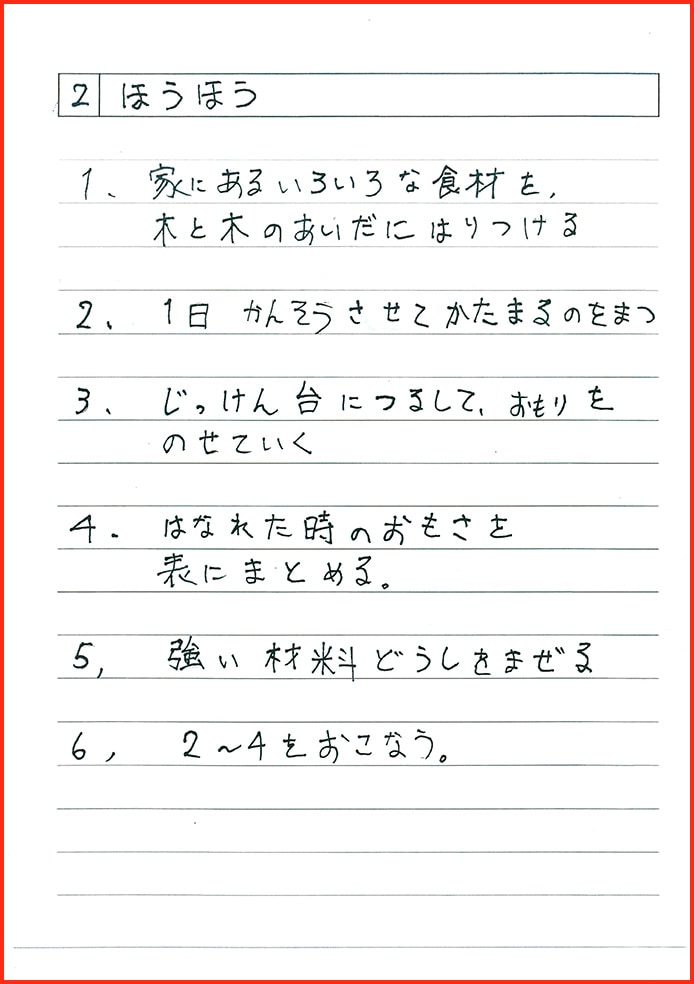 2 ほうほう
1、家にあるいろいろな食材を、
木と木のあいだにはりつける
2、1日 かんそうさせてかたまるのをまつ
3、じっけん台につるして、おもりを
のせていく
4. はなれた時のおもさを
表にまとめる。
5, 強い材料どうしをまぜる
6, 2~4をおこなう。